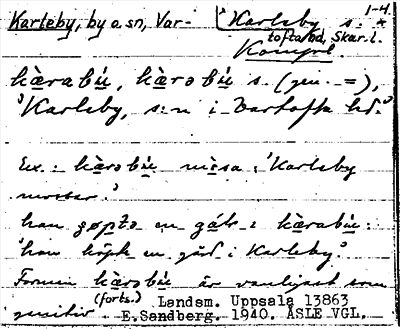 Karleby, by o. sn, Var-
1-4.
Karleby s. *
tofta hd, Skar. l.
Kompl.
kàrabú, kàrəbú s. (gen. =),
'Karleby, s:n i Bartofta hd.'
Ex.: kàrəbú mòsa, 'Karleby
mossar.'
han çøptə en gáɭ i kàrabú:
'han köpte en gård i Karleby.'
Formen kàrəbú är vanligast som
genitiv (forts.)
Landsm. Uppsala 13863
E.Sandberg. 1940. ÅSLE VGL.